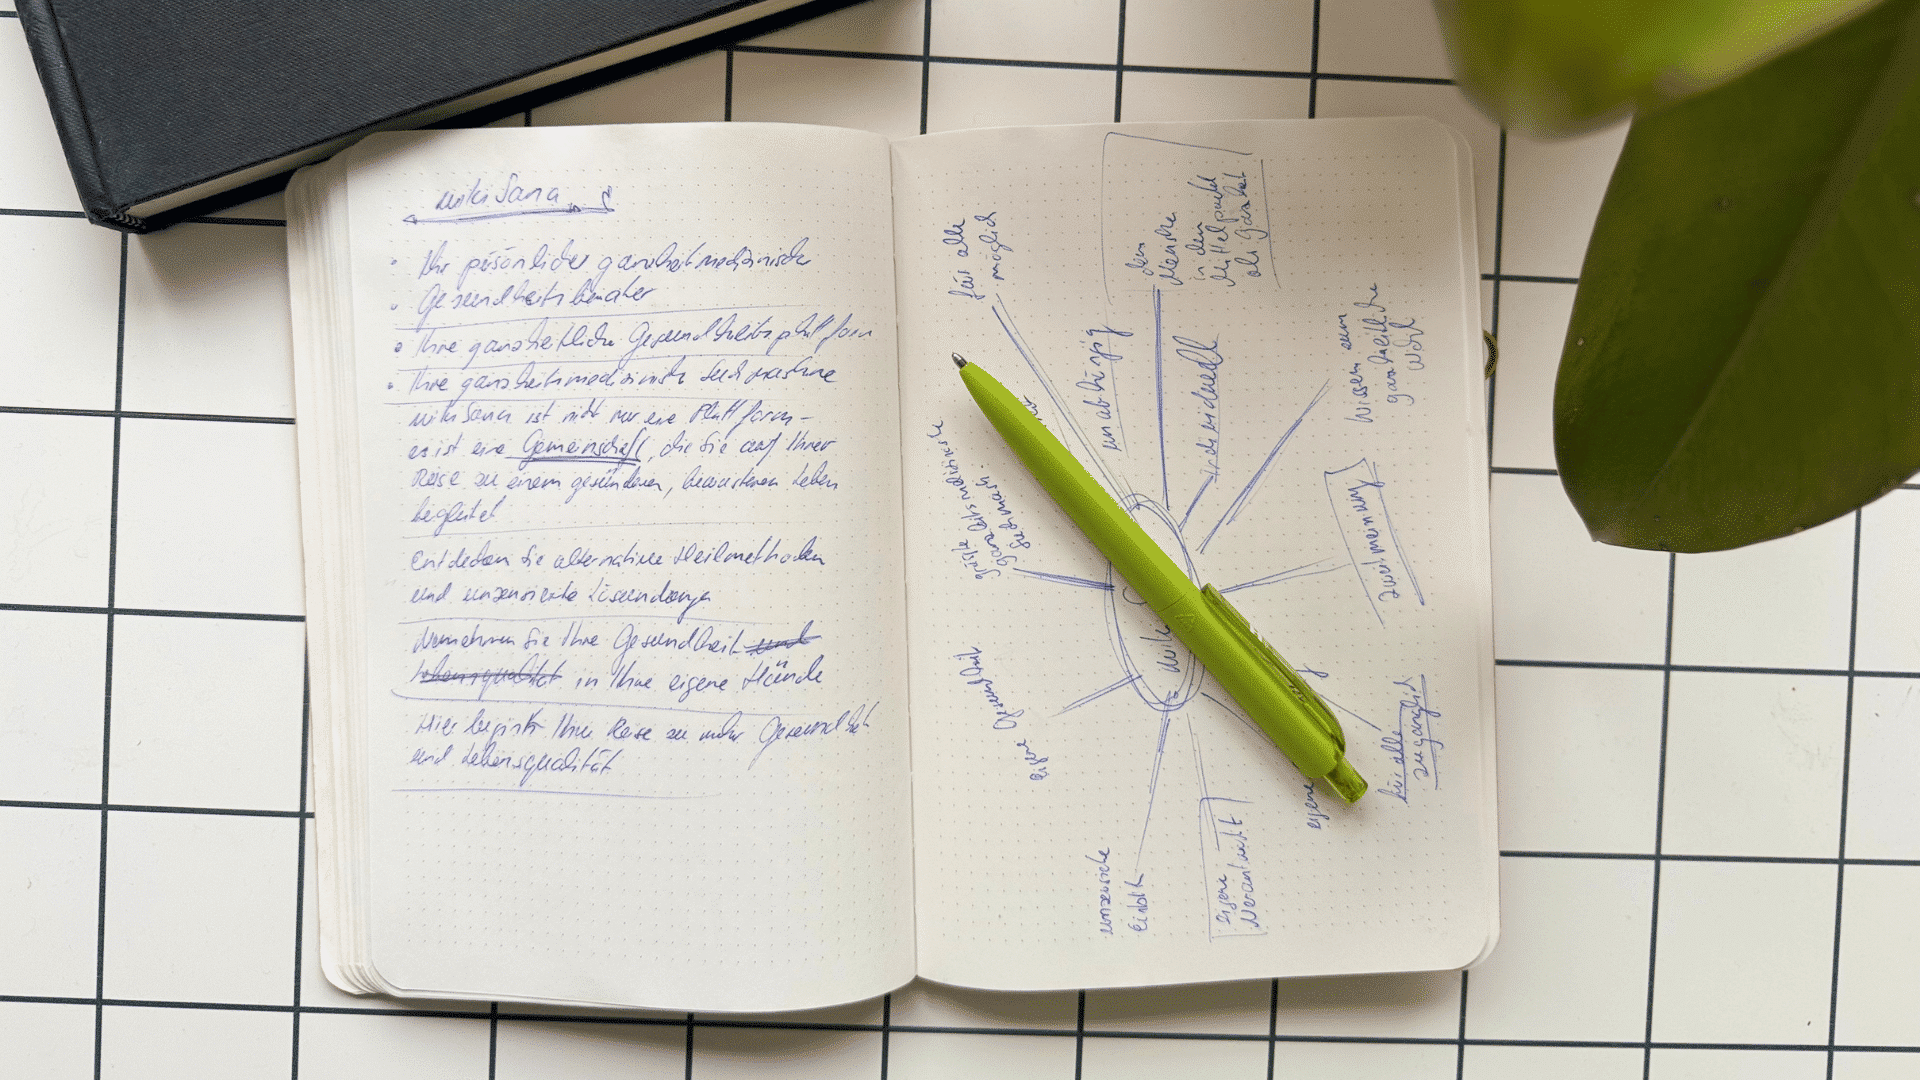 wikiSana
• Ihr persönlicher ganzheitmedizinischer
• Gesundheitsberater
• Ihre ganzheitliche Gesundheitsplattform
• Ihre ganzheitmedizinische Suchmaschine
wikiSana ist nicht nur eine Plattform –
es ist eine Gemeinschaft, die Sie auf Ihrer
Reise zu einem gesünderen, bewussteren Leben
begleitet
Entdecken Sie alternative Heilmethoden
und unzensierte
Nehmen Sie Ihre Gesundheit und
Lebensqualität in Ihre eigene Hände
Hier beginnt Ihre Reise zu mehr Gesundheit
und Lebensqualität
für alle
möglich
unabhängig
den
Menschen
in den
Mittelpunkt
als Ganzheit
individuell
Wissen zum
ganzheitliche
Wohl
Zweitmeinung
für alle
zugänglich
eigene
eigene
Verantwort
Einblick
eigene Gesundheit
größte
ganzheitsmedizinische
Suchmasch.
wiki